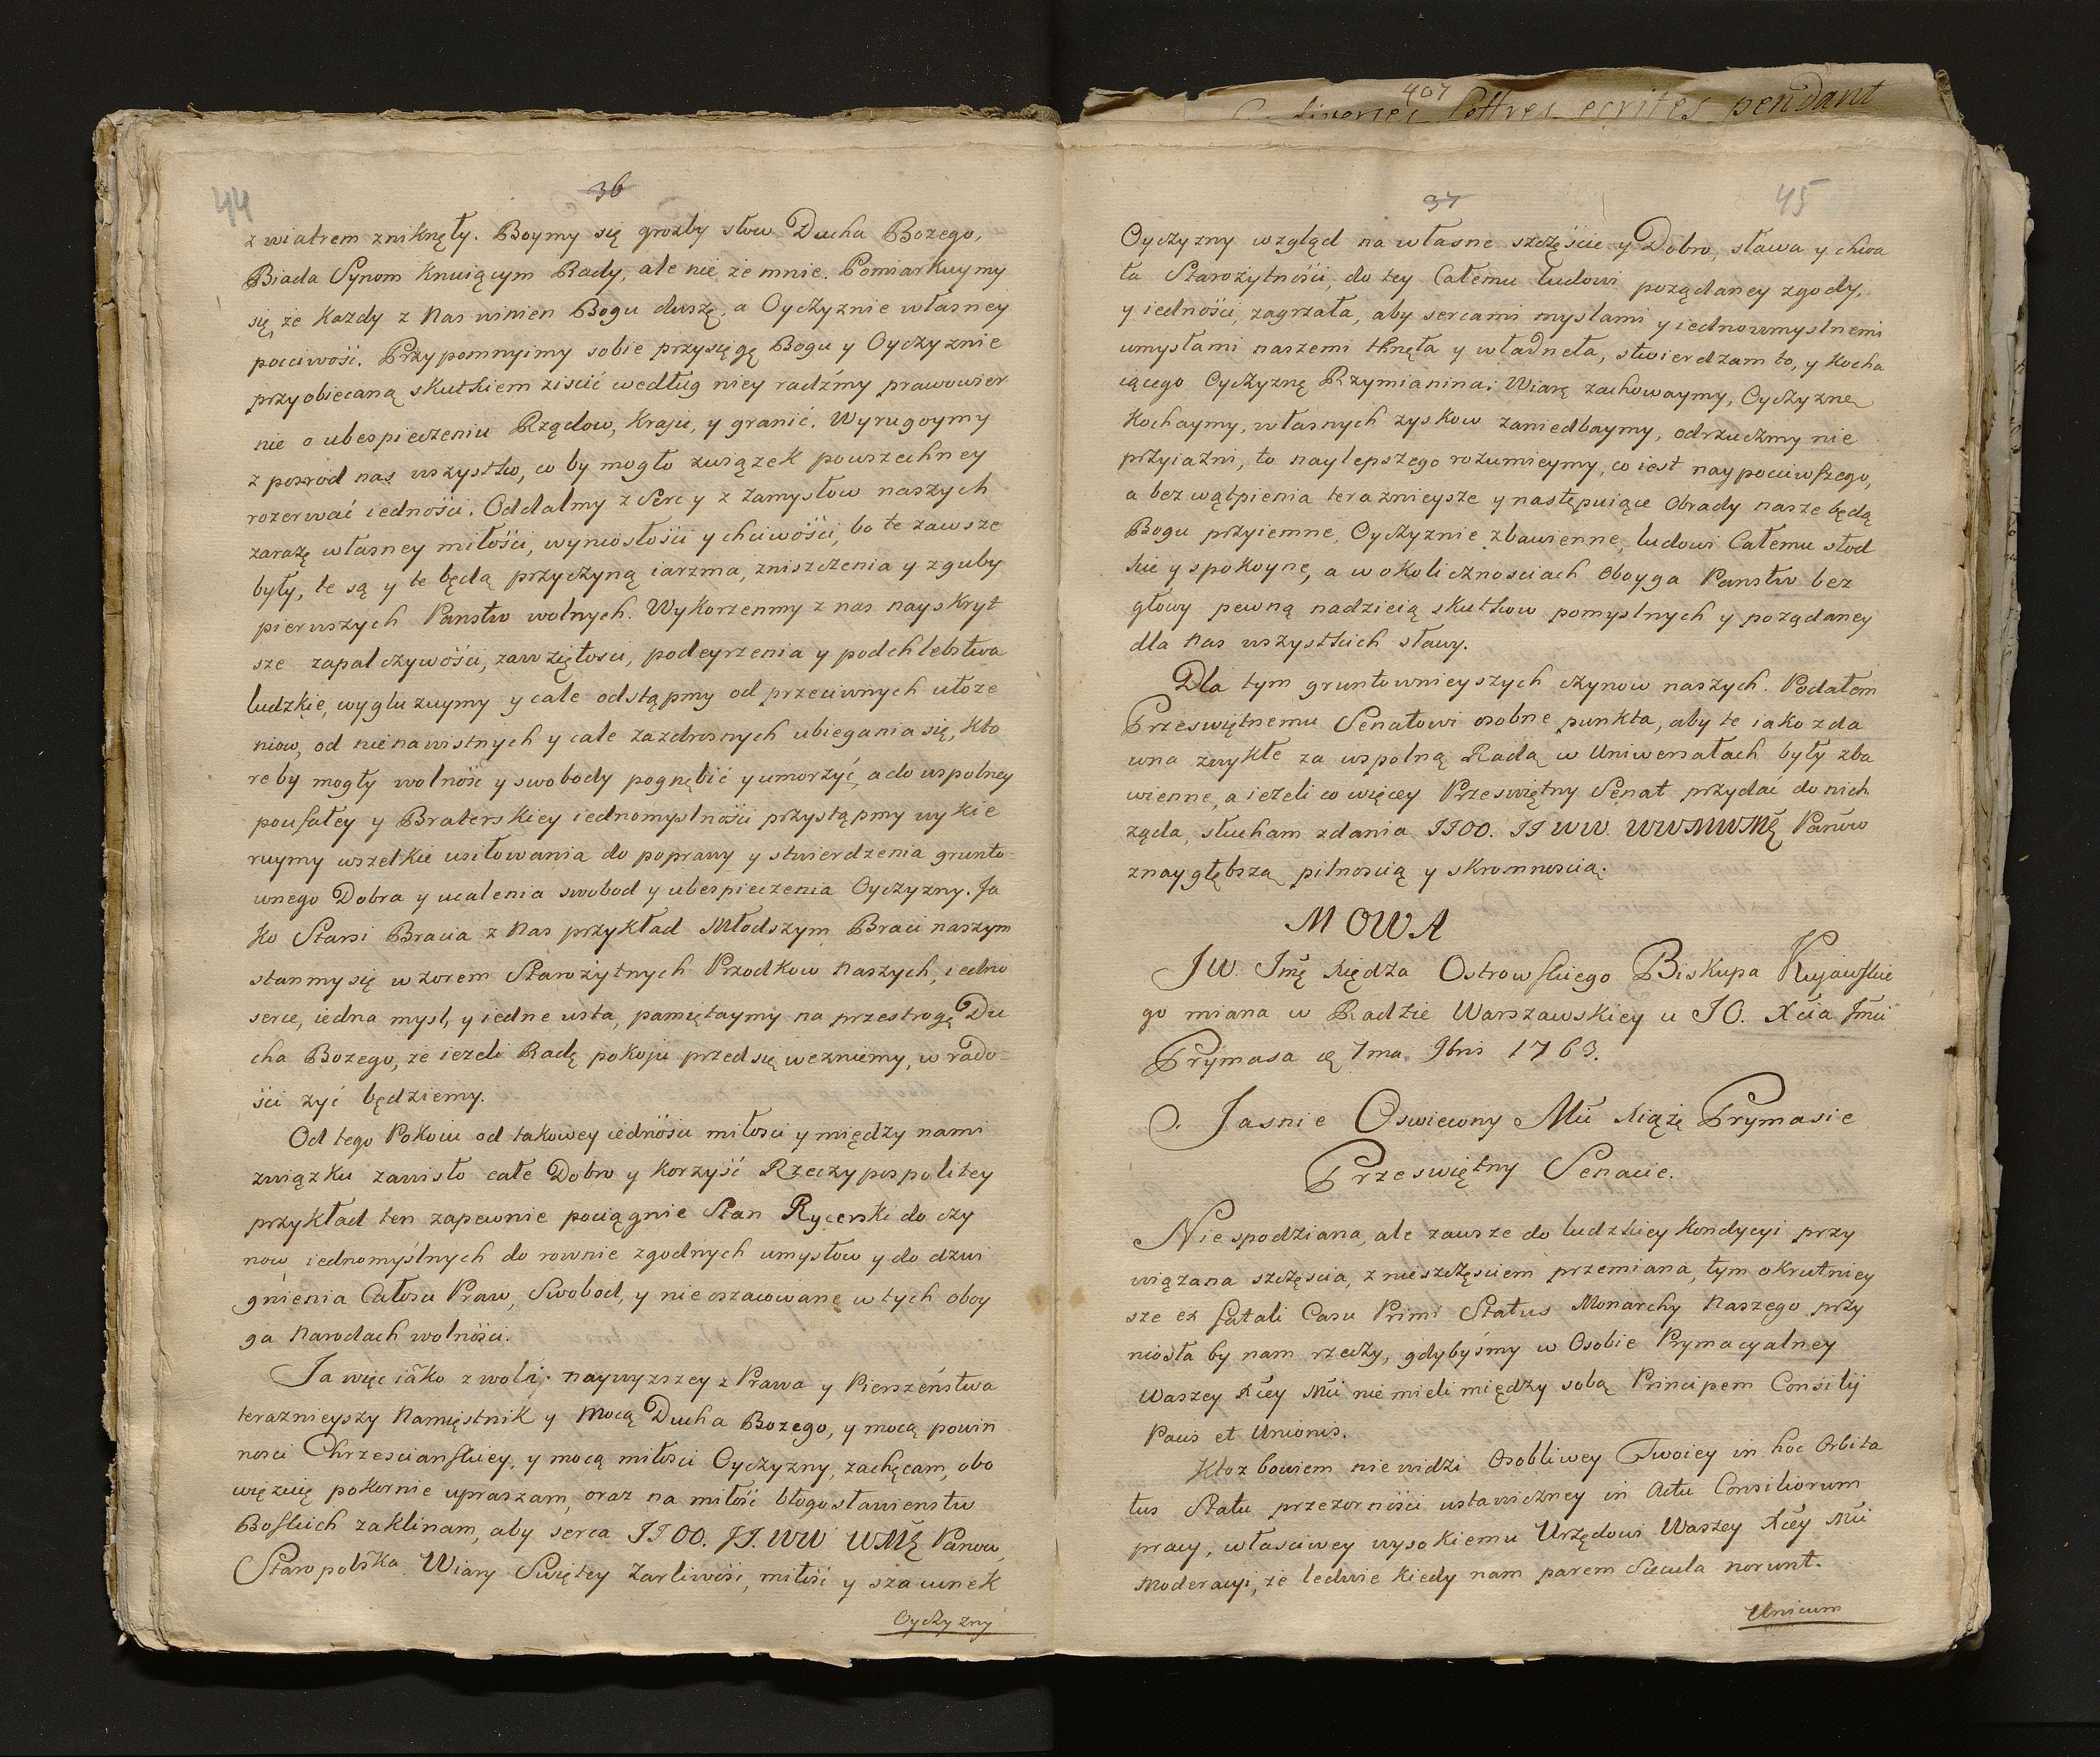 44
36
z wiatrem zniknęły. Boymy się grozby słow Ducha Bozego,
Biada Synom knuiącym Rady, ale nie ze mnie. Pomiarkuymy
się, ze kazdy z nas winien Bogu duszę, a Oyczyznie własney
poczciwość. Przypomnyimy sobie przysięgę Bogu y Oyczyznie
przyobiecaną skutkiem ziscić według niey radźmy prawowier
nie o ubespieczeniu Rządow, Kraju, y granić. Wyrugoymy
z posrod nas wszystko, co by mogło związek powszechney
rozerwać iednośći. Oddalmy z Serc y z zamysłow naszych
zarazę własney miłośći, wyniosłośći y chciwośći, bo te zawsze
były, te są y te będą przyczyną iarzma, zniszczenia y zguby
pierwszych Panstw wolnych. Wykorzenmy z nas nayskryt
sze zapalczywośći, zawziętosci, podeyrzenia y podchlebstwa
ludzkie, wygluzuymy y cale odstąpmy od przeciwnych ułoze
niow, od nienawistnych y cale zazdrosnych ubiegania się, kto
re by mogły wolność y swobody pognębić y umorzyć, a do wspolney
poufałey y Braterskiey iednomyslnośći przystąpmy wykie
ruymy wszelkie usiłowania do poprawy y stwierdzenia grunto-
wnego Dobra y ucalenia swobod y ubespieczenia Oyczyzny. Ja
ko Starsi Bracia z nas przykład Młodszym Braci naszym
stanmy się wzorem Starozytnych Przodkow naszych, iedno
serce, iedna mysl, y iedne usta, pamiętaymy na przestrogę Du
cha Bozego, ze iezeli Radę pokoju przed się wezniemy, w rado-
śći zyć będziemy.
Od tego Pokoiu od takowey iednośći miłosci y między nami
związku zawisło całe Dobro y korzyść Rzeczypospolitey
przykład ten zapewnie pociągnie Stan Rycerski do czy
now iednomyślnych do rownie zgodnych umysłow y do dzwi
gnienia Całosci Praw, Swobod, y nie oszacowanę w tych oboy
ga Narodach wolnośći.
Ja więc iako z woli naywyzszey z Prawa y Pierszeństwa
teraznieyszy Namięstnik y mocą Ducha Bozego, y mocą powin
nosci Chrzescianskiey, y mocą miłosci Oyczyzny, zachęcam, obo
więzuię pokornie upraszam, oraz na miłość błogosławienstw
Boskich zaklinam, aby serca JJOO. JJ. WW WMĘ Panow,
Staropolska Wiary Swiętey Zarliwość, miłość y szacunek
Oyczyzny
407
lettres ecrites pendant
37
45
Oyczyzny wzgląd na własne szczęście y Dobro, sława y chwa
ła Starozytnośći, do tey Całemu ludowi poządaney zgody,
y iednośći, zagrzała, aby sercami myslami y iednomyslnemi
umysłami naszemi tknęła y władneła, stwierdzam to, y kocha
iącego Oyczyznę Rzymianina: Wiarę zachowaymy, Oyczyznę
kochaymy, własnych zyskow zaniedbaymy, odrzućmy nie
przyiazni, to naylepszego rozumieymy, co iest naypoczciwszego,
a bez wątpienia teraznieysze y następuiące Obrady nasze będą
Bogu przyiemne, Oyczyznie zbawienne, ludowi Całemu słod
kie y spokoyne, a w okolicznosciach oboyga Panstw bez
głowy pewną nadzieią skutkow pomyslnych y poządaney
dla nas wszystkich sławy.
Dla tym gruntownieyszych czynow naszych. Podałem
Przeswiętnemu Senatowi osobne punkta, aby te iako zda
wna zwykłe za wspolną Radą w Uniwersałach były zba
wienne, a iezeli co więcey Przeswiętny Senat przydać do nich
ząda, słucham zdania JJOO. JJ WW. WWMWMĘ Panow
z naygłębszą pilnoscią y skromnoscią.
MOWA
JW. Jmę Xiędza Ostrowskiego Biskupa Kujawskie
go miana w Radzie Warszawskiey u JO. Xcia Jmci
Prymasa 7ma. 9bris 1763.
Jasnie Oswiecony Mci Xiąze Prymasie
Przeswiętny Senacie.
Niespodziana, ale zawsze do ludzkiey kondycyi przy
wiązana szczęscia, z nieszczęsciem przemiana, tym okrutniey
sze ex fatali Casu Primi Status Monarchy Naszego przy
niosła by nam rzeczy, gdybyśmy w Osobie Prymacyalney
Waszey Xcey Mci nie mieli między sobą Principem Consilij
Pacis et Unionis.
Ktoz bowiem nie widzi Osobliwey Twoiey in hoc Orbita
tus Statu przezornośći ustawiczney in Actu Consiliorum
pracy, własciwey wysokiemu Urzędowi Waszey Xcey Mci
Moderacyi, ze ledwie kiedy nam parem Saecula norunt.
Unicum